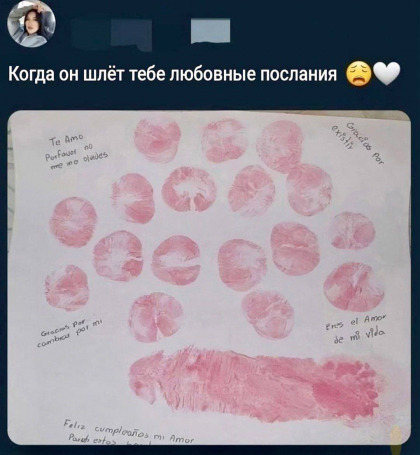 Когда он шлёт тебе любовные послания 😩🤍
Te Amo
Porfavor no
me olvides
Gracias por
existir
Gracias Por
cambiar por mi
Eres el Amor
de mi vida
Feliz cumpleaños mi Amor